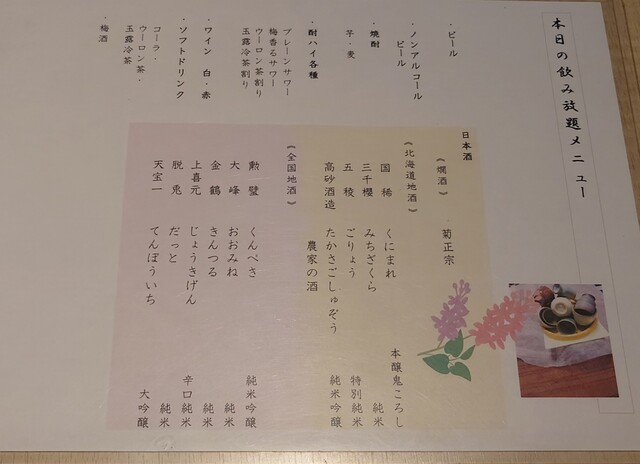 本日の飲み放題メニュー
・ビール
・ノンアルコール
ビール
・焼酎
芋・麦
・酎ハイ各種
プレーンサワー
梅香るサワー
ウーロン茶割り
玉露冷茶割り
・ワイン 白・赤
・ソフトドリンク
コーラ・
ウーロン茶・
玉露冷茶
・梅酒
日本酒
《燗酒》
菊正宗
《北海道地酒》
国稀 くにまれ 本醸鬼ころし
三千櫻 みちざくら 純米
五稜 ごりょう 特別純米
高砂酒造 たかさごしゅぞう 純米吟醸
農家の酒
《全国地酒》
勲璧 くんぺき 純米吟醸
大峰 おおみね 純米
金鶴 きんつる 純米
上喜元 じょうきげん 辛口純米
脱兎 だっと 純米
天宝一 てんぽういち 大吟醸